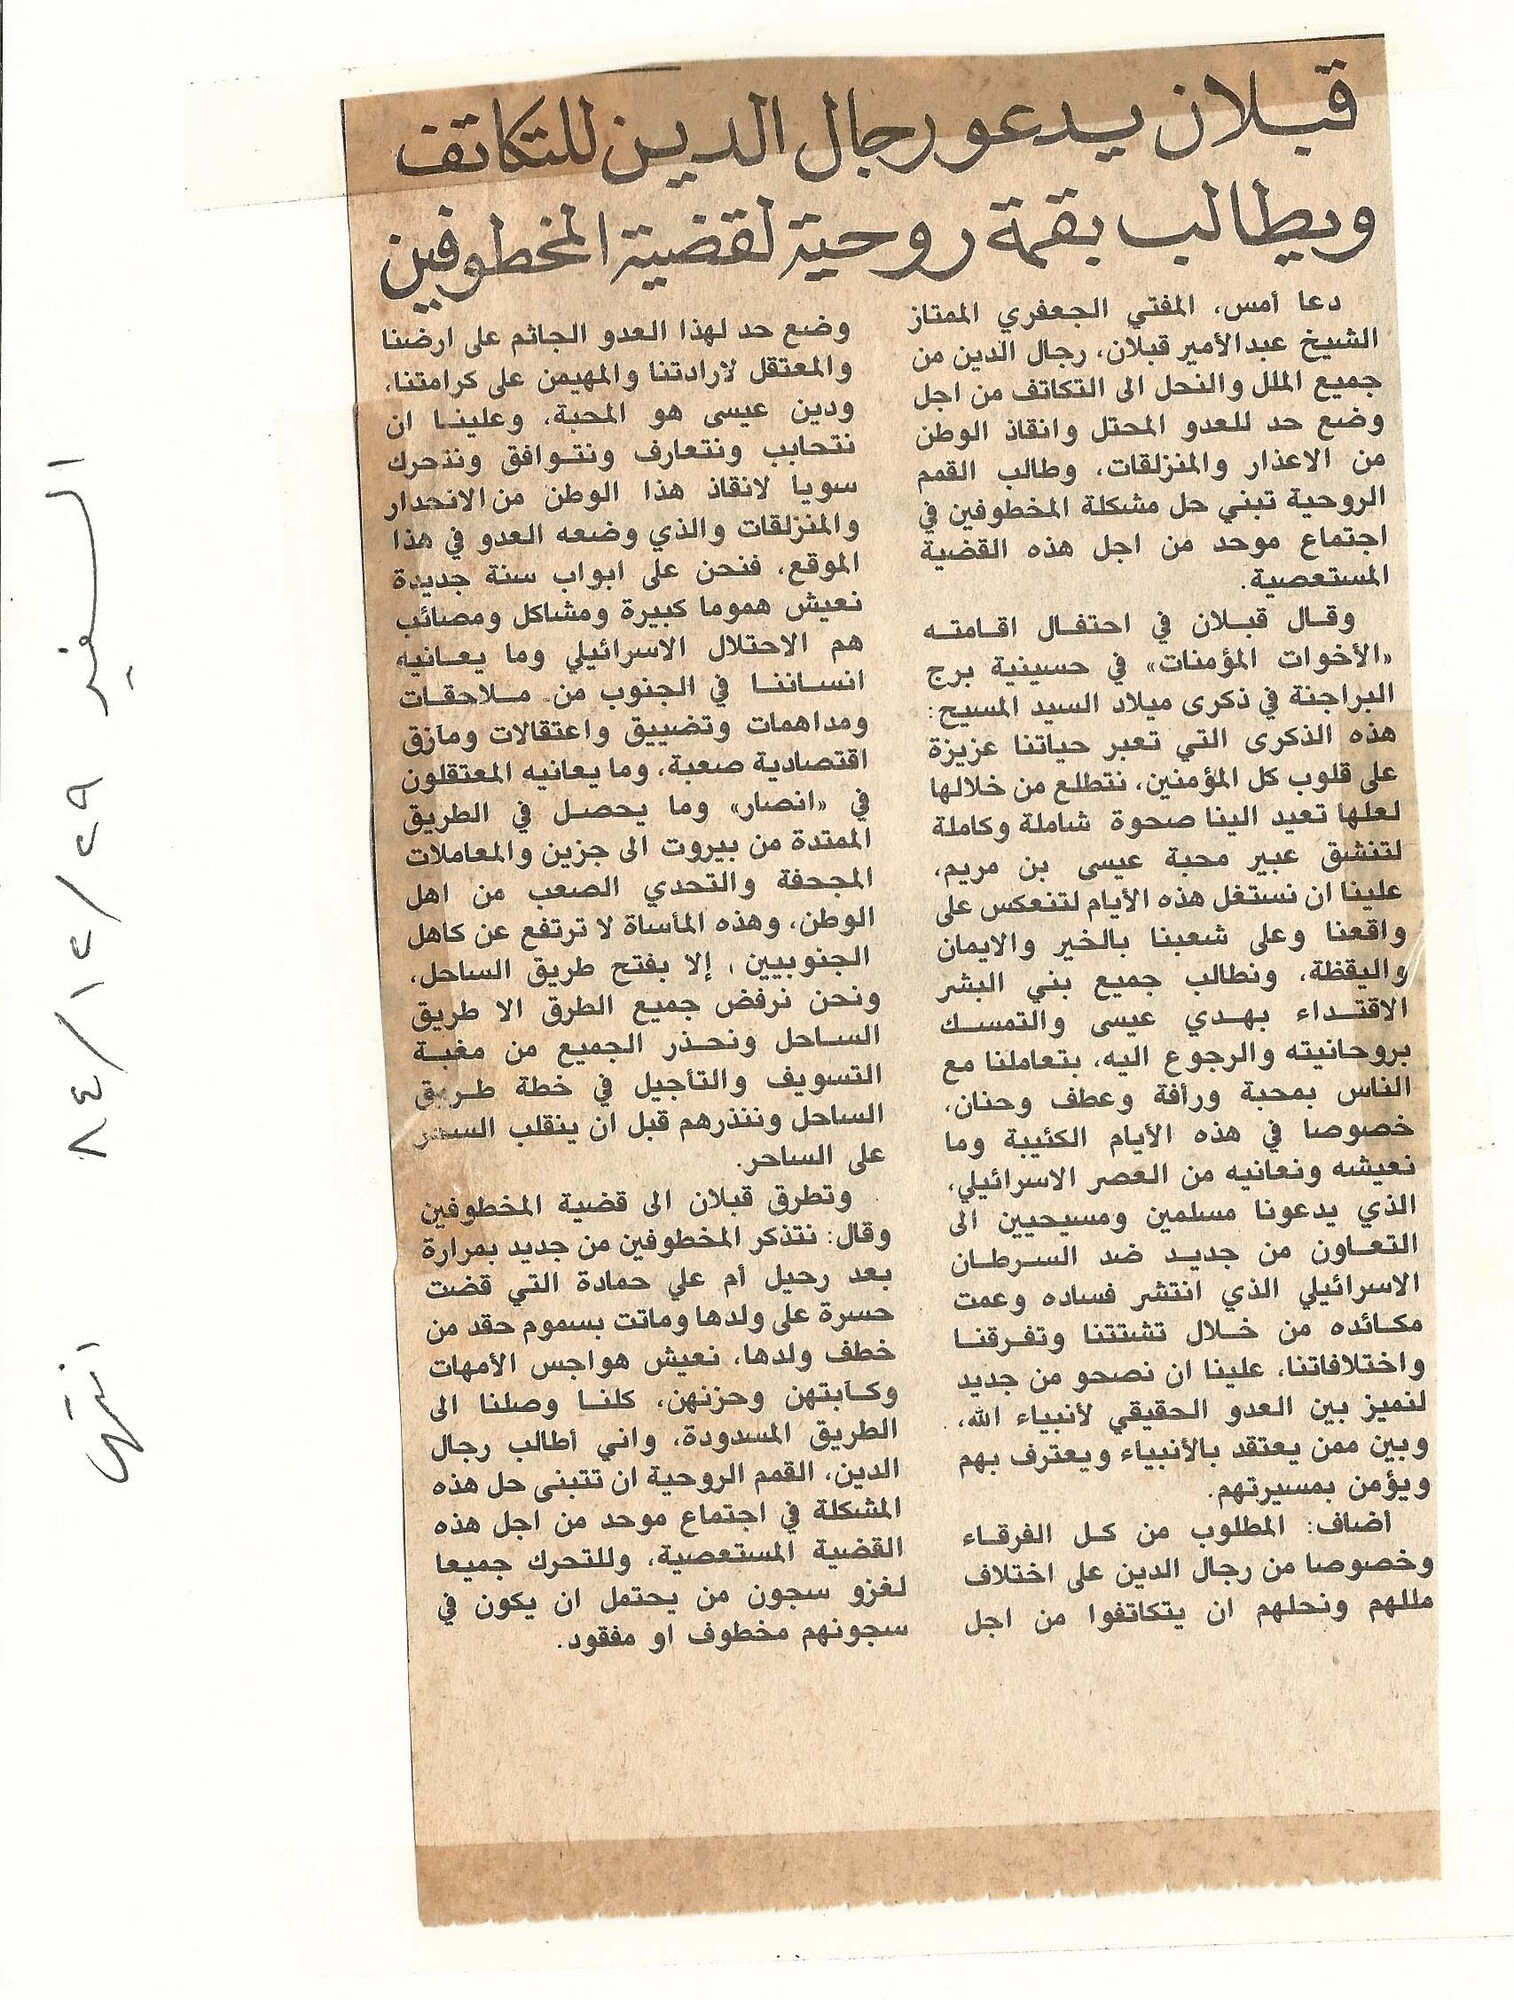 قبلان يدعو رجال الدين للتكاتف
ويطالب بقمة روحية لقضية المخطوفين
دعا أمس، المفتي الجعفري الممتاز
الشيخ عبدالأمير قبلان، رجال الدين من
جميع الملل والنحل الى التكاتف من اجل
وضع حد للعدو المحتل وانقاذ الوطن
من الاعذار والمنزلقات، وطالب القمم
الروحية تبني حل مشكلة المخطوفين في
اجتماع موحد من اجل هذه القضية
المستعصية.
وقال قبلان في احتفال اقامته
«الأخوات المؤمنات» في حسينية برج
البراجنة في ذكرى ميلاد السيد المسيح:
هذه الذكرى التي تعبر حياتنا عزيزة
على قلوب كل المؤمنين، نتطلع من خلالها
لعلها تعيد الينا صحوة شاملة وكاملة
لتنشق عبير محبة عيسى بن مريم،
علينا ان نستغل هذه الأيام لتنعكس على
واقعنا وعلى شعبنا بالخير والايمان
واليقظة، ونطالب جميع بني البشر
الاقتداء بهدي عيسى والتمسك
بروحانيته والرجوع اليه، بتعاملنا مع
الناس بمحبة ورأفة وعطف وحنان،
خصوصا في هذه الأيام الكئيبة وما
نعيشه ونعانيه من العصر الاسرائيلي،
الذي يدعونا مسلمين ومسيحيين الى
التعاون من جديد ضد السرطان
الاسرائيلي الذي انتشر فساده وعمت
مكائده من خلال تشتتنا وتفرقنا
واختلافاتنا، علينا ان نصحو من جديد
لنميز بين العدو الحقيقي لأنبياء الله،
وبين ممن يعتقد بالأنبياء ويعترف بهم
ويؤمن بمسيرتهم.
اضاف: المطلوب من كل الفرقاء
وخصوصا من رجال الدين على اختلاف
مللهم ونحلهم ان يتكاتفوا من اجل
وضع حد لهذا العدو الجاثم على ارضنا
والمعتقل لارادتنا والمهيمن على كرامتنا،
ودين عيسى هو المحبة، وعلينا ان
نتحابب ونتعارف ونتوافق ونتحرك
سويا لانقاذ هذا الوطن من الانحدار
والمنزلقات والذي وضعه العدو في هذا
الموقع، فنحن على ابواب سنة جديدة
نعيش هموما كبيرة ومشاكل ومصائب
هم الاحتلال الاسرائيلي وما يعانيه
انساننا في الجنوب من ملاحقات
ومداهمات وتضييق واعتقالات ومآزق
اقتصادية صعبة، وما يعانيه المعتقلون
في «انصار» وما يحصل في الطريق
الممتدة من بيروت الى جزين والمعاملات
المجحفة والتحدي الصعب من اهل
الوطن، وهذه المأساة لا ترتفع عن كاهل
الجنوبيين، إلا بفتح طريق الساحل،
ونحن نرفض جميع الطرق الا طريق
الساحل ونحذر الجميع من مغبة
التسويف والتأجيل في خطة طريق
الساحل وننذرهم قبل ان ينقلب السحر
على الساحر.
وتطرق قبلان الى قضية المخطوفين
وقال: نتذكر المخطوفين من جديد بمرارة
بعد رحيل أم علي حمادة التي قضت
حسرة على ولدها وماتت بسموم حقد من
خطف ولدها، نعيش هواجس الأمهات
وكآبتهن وحزنهن، كلنا وصلنا الى
الطريق المسدودة، واني أطالب رجال
الدين، القمم الروحية ان تتبنى حل هذه
المشكلة في اجتماع موحد من اجل هذه
القضية المستعصية، وللتحرك جميعا
لغزو سجون من يحتمل ان يكون في
سجونهم مخطوف او مفقود.
السفير ٢٩/١٢/٨٤
انتهى